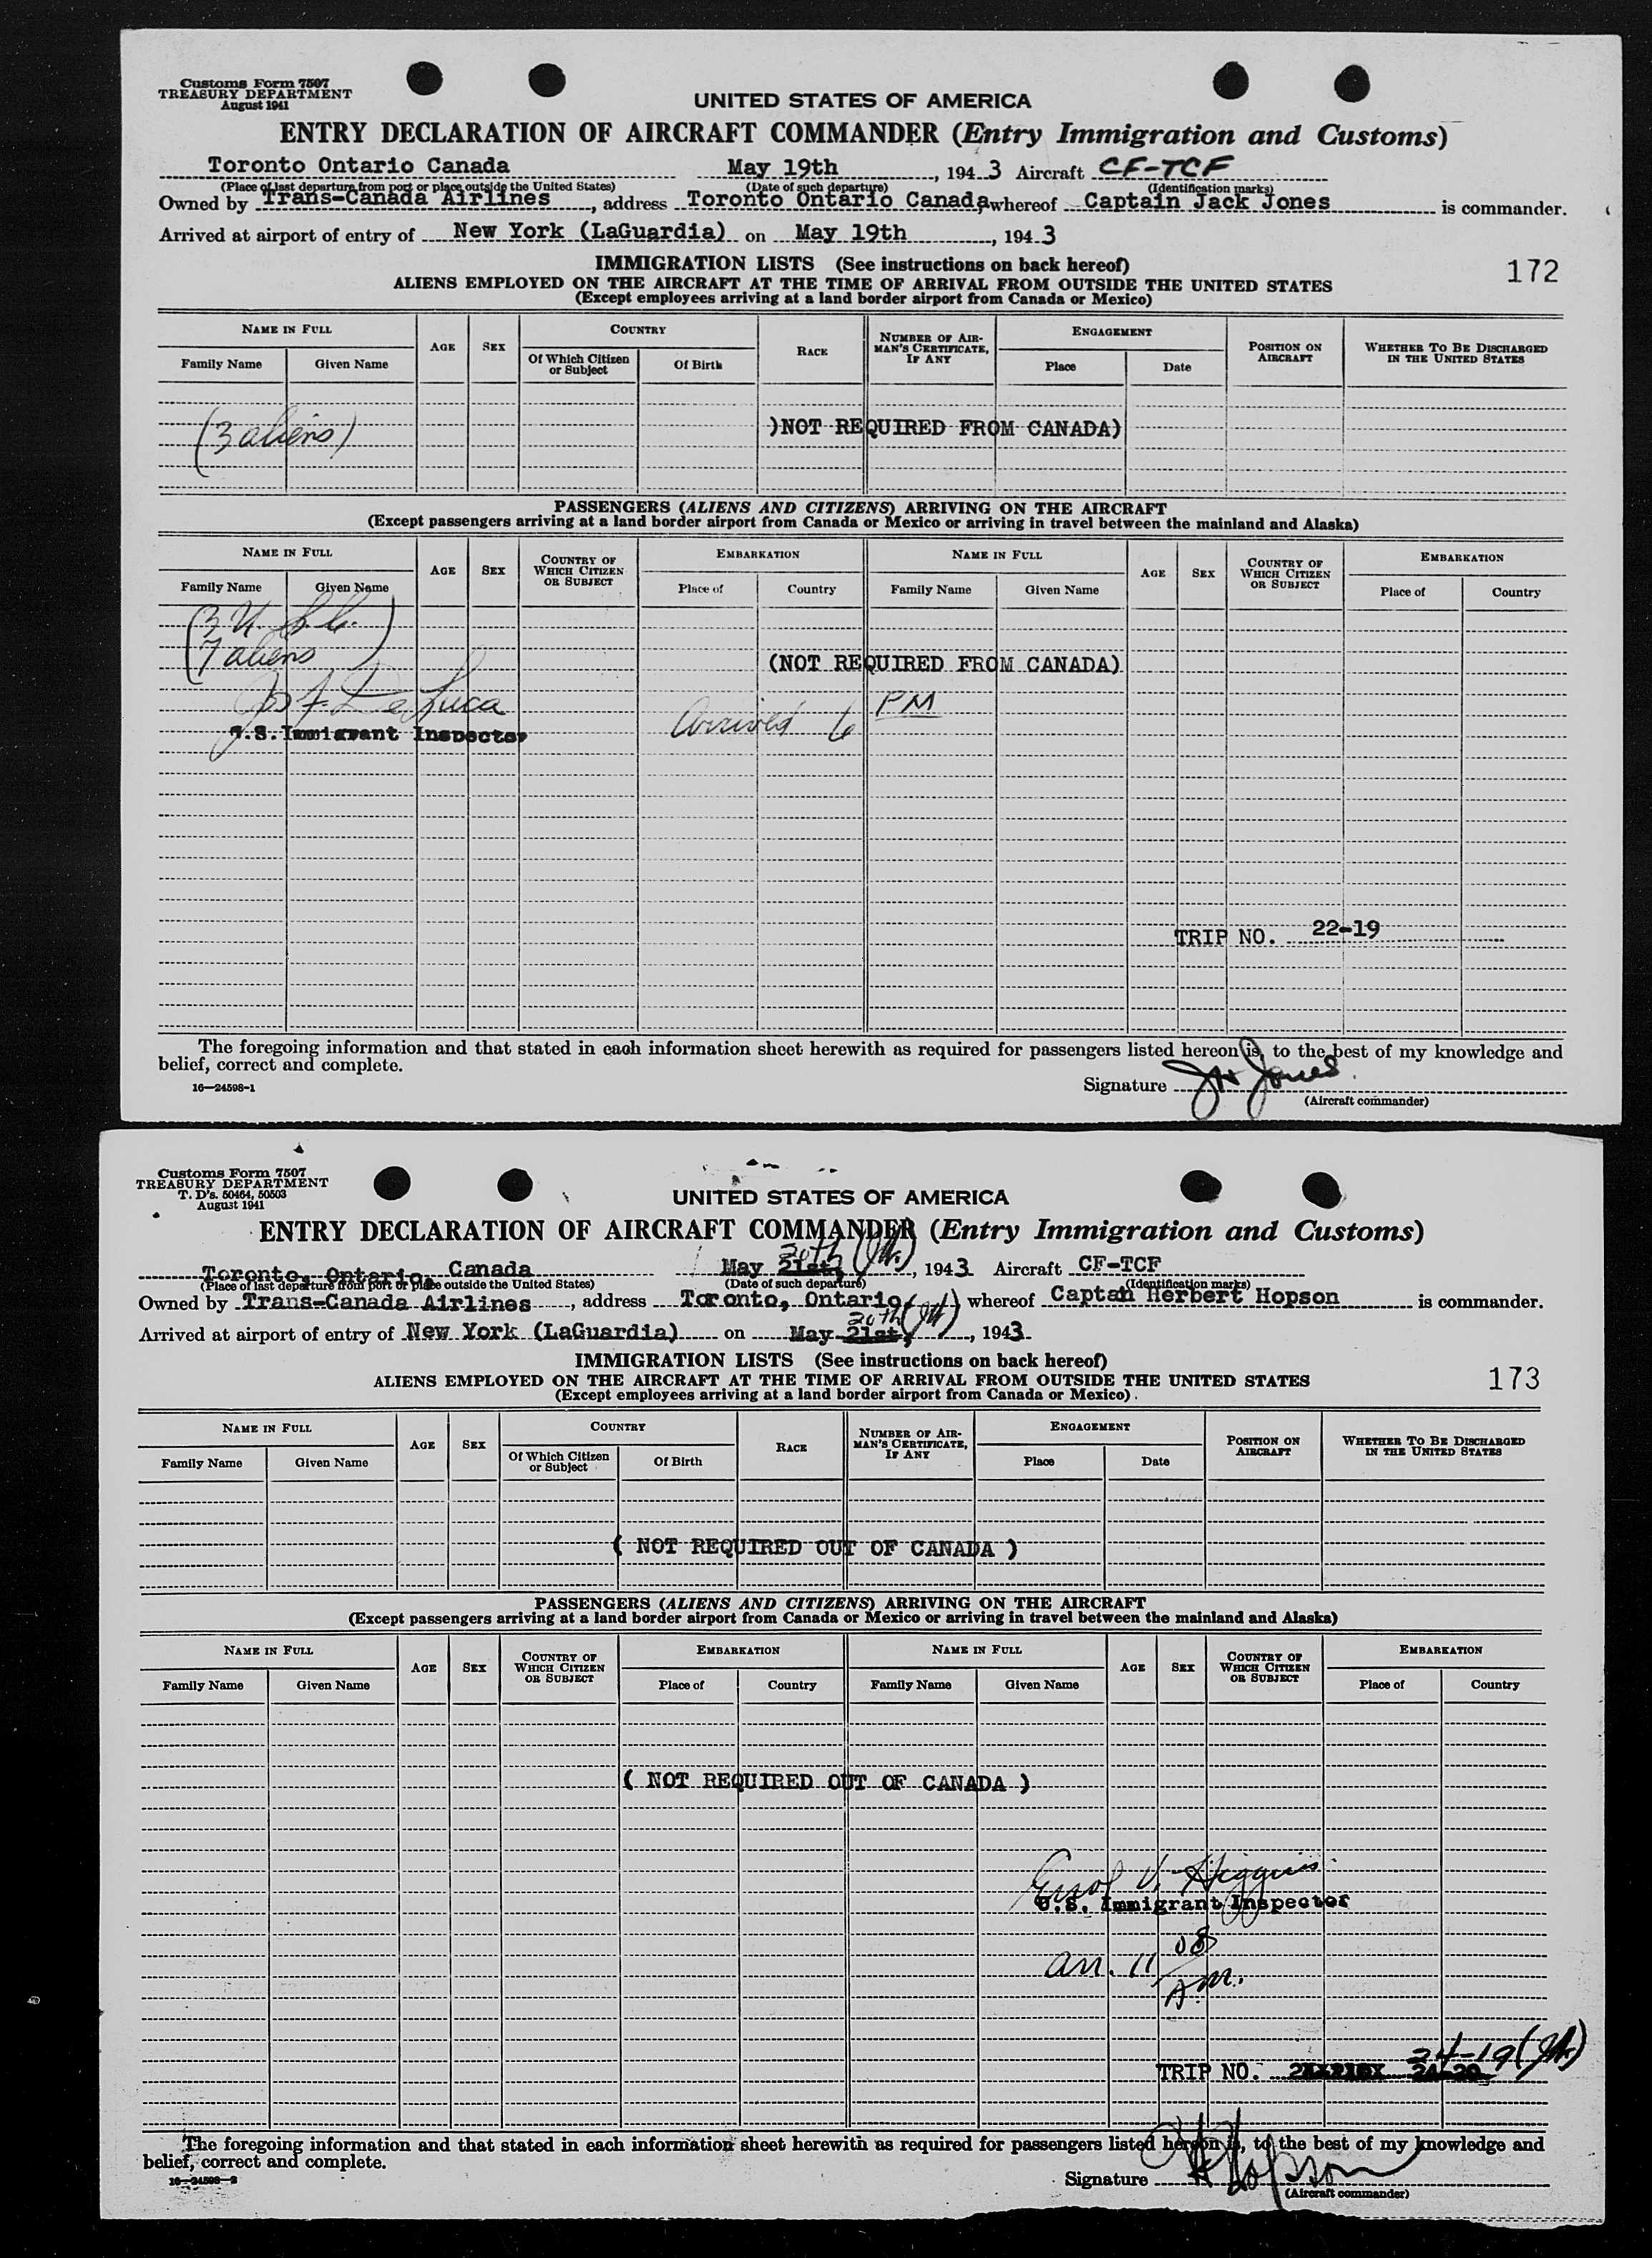 Customs Form 7507
TREASURY DEPARTMENT
August 1941
UNITED STATES OF AMERICA
ENTRY DECLARATION OF AIRCRAFT COMMANDER (Entry Immigration and Customs)
Toronto Ontario Canada May 19th, 1943 Aircraft CF-TCF
(Place of last departure from port or place outside the United States) (Date of such departure) (Identification marks)
Owned by Trans-Canada Airlines, address Toronto Ontario Canada whereof Captain Jack Jones is commander.
Arrived at airport of entry of New York (LaGuardia) on May 19th, 1943
IMMIGRATION LISTS (See instructions on back hereof)
172
ALIENS EMPLOYED ON THE AIRCRAFT AT THE TIME OF ARRIVAL FROM OUTSIDE THE UNITED STATES
(Except employees arriving at a land border airport from Canada or Mexico)
NAME IN FULL AGE SEX COUNTRY RACE NUMBER OF AIRMAN'S CERTIFICATE, IF ANY ENGAGEMENT POSITION ON AIRCRAFT WHETHER TO BE DISCHARGED IN THE UNITED STATES
Family Name Given Name Of Which Citizen or Subject Of Birth Place Date
(3 aliens) )NOT REQUIRED FROM CANADA)
PASSENGERS (ALIENS AND CITIZENS) ARRIVING ON THE AIRCRAFT
(Except passengers arriving at a land border airport from Canada or Mexico or arriving in travel between the mainland and Alaska)
NAME IN FULL AGE SEX COUNTRY OF WHICH CITIZEN OR SUBJECT EMBARKATION NAME IN FULL AGE SEX COUNTRY OF WHICH CITIZEN OR SUBJECT EMBARKATION
Family Name Given Name Place of Country Family Name Given Name Place of Country
(3 U.S.C.
7 aliens) (NOT REQUIRED FROM CANADA)
Jos F. De Luca
U.S. Immigrant Inspector Arrived 6 PM
TRIP NO. 22-19
The foregoing information and that stated in each information sheet herewith as required for passengers listed hereon is, to the best of my knowledge and
belief, correct and complete.
16—24598-1 Signature JW Jones
(Aircraft commander)
Customs Form 7507
TREASURY DEPARTMENT
T. D's. 50464, 50503
August 1941
UNITED STATES OF AMERICA
ENTRY DECLARATION OF AIRCRAFT COMMANDER (Entry Immigration and Customs)
20th
Toronto, Ontario, Canada May 21st, 1943 Aircraft CF-TCF
(Place of last departure from port or place outside the United States) (Date of such departure) (Identification marks)
Owned by Trans-Canada Airlines, address Toronto, Ontario, whereof Captah Herbert Hopson is commander.
20th
Arrived at airport of entry of New York (LaGuardia) on May 21st, 1943
IMMIGRATION LISTS (See instructions on back hereof)
173
ALIENS EMPLOYED ON THE AIRCRAFT AT THE TIME OF ARRIVAL FROM OUTSIDE THE UNITED STATES
(Except employees arriving at a land border airport from Canada or Mexico)
NAME IN FULL AGE SEX COUNTRY RACE NUMBER OF AIRMAN'S CERTIFICATE, IF ANY ENGAGEMENT POSITION ON AIRCRAFT WHETHER TO BE DISCHARGED IN THE UNITED STATES
Family Name Given Name Of Which Citizen or Subject Of Birth Place Date
( NOT REQUIRED OUT OF CANADA )
PASSENGERS (ALIENS AND CITIZENS) ARRIVING ON THE AIRCRAFT
(Except passengers arriving at a land border airport from Canada or Mexico or arriving in travel between the mainland and Alaska)
NAME IN FULL AGE SEX COUNTRY OF WHICH CITIZEN OR SUBJECT EMBARKATION NAME IN FULL AGE SEX COUNTRY OF WHICH CITIZEN OR SUBJECT EMBARKATION
Family Name Given Name Place of Country Family Name Given Name Place of Country
( NOT REQUIRED OUT OF CANADA )
Errol V. Higgins
U.S. Immigrant Inspector
arr. 11 08 A.M.
24-19
TRIP NO. 24-20
The foregoing information and that stated in each information sheet herewith as required for passengers listed hereon is, to the best of my knowledge and
belief, correct and complete.
16—24598-2 Signature H Hopson
(Aircraft commander)